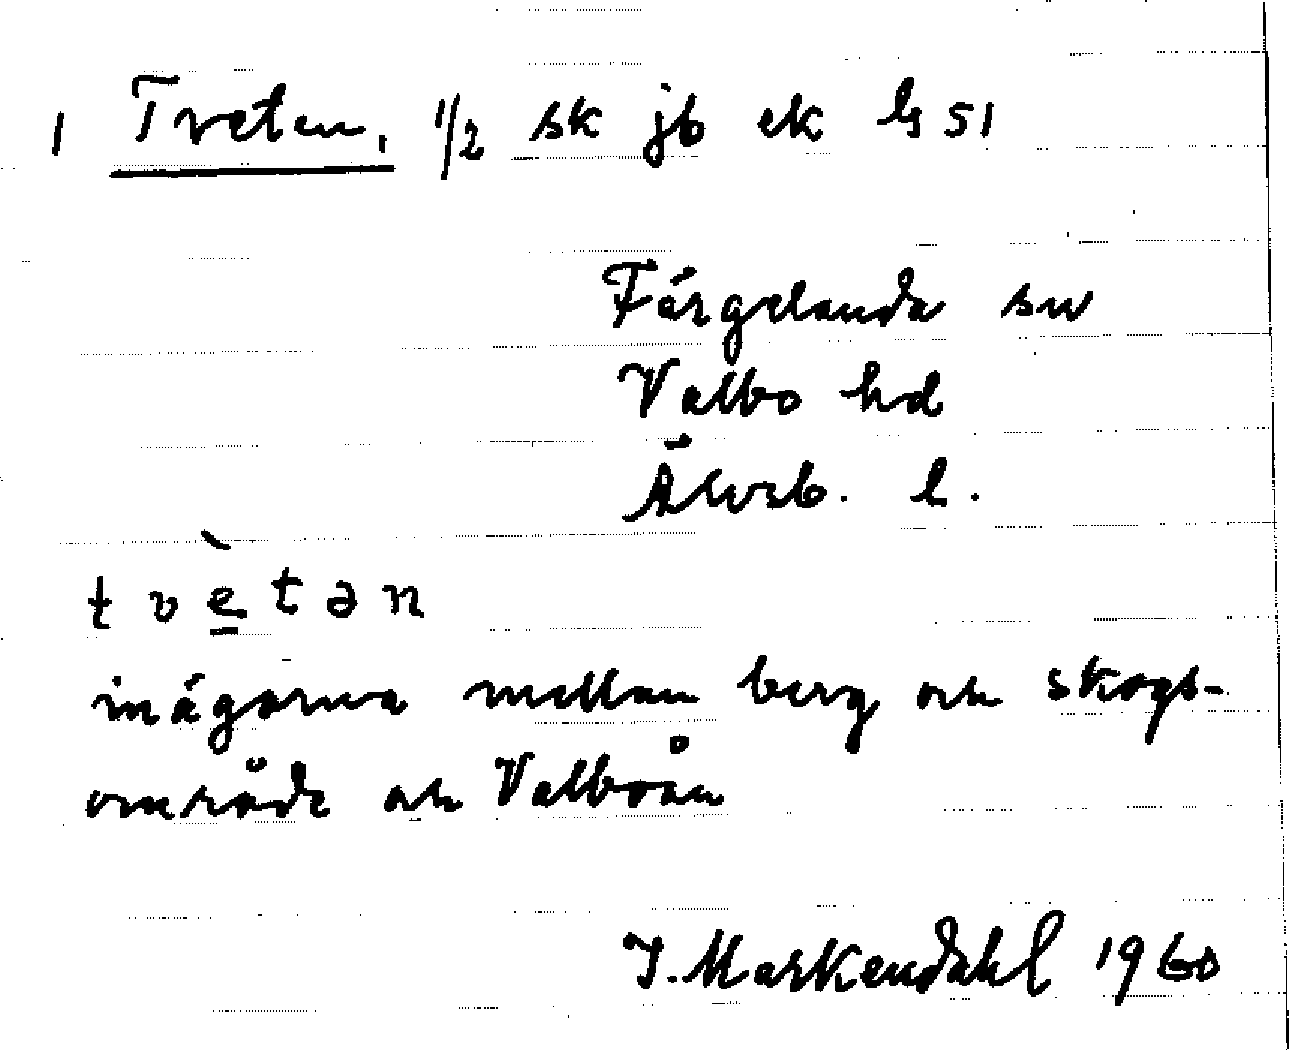 1 Tveten, 1/2 sk jb ek G 51
Färgelanda sn
Valbo hd
Älvsb. l.
tvètən
inägorna mellan berg och skogs-
område och Valboån
I. Markendahl 1960